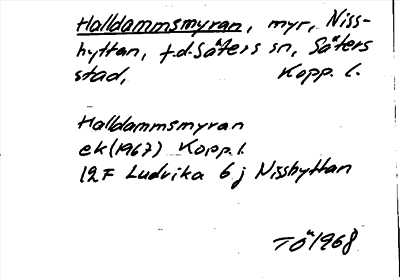 Halldammsmyran, myr, Niss-
hyttan, f.d. Säters sn, Säters
stad, Kopp. l.
Halldammsmyran
ek (1967) Kopp. l.
12F Ludvika 6 j Nisshyttan
TÖ 1968